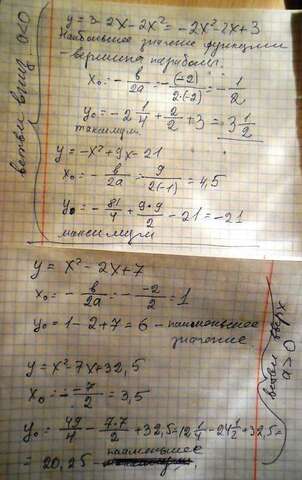 y = 3 - 2x - 2x² = -2x² - 2x + 3
Наибольшее значение функции
- вершина параболы.
x₀ = - в/2a = - (-2)/(2·(-2)) = - 1/2
y₀ = -2 1/4 + 2/2 + 3 = 3 1/2
максимум.
y = -x² + 9x - 21
x₀ = - в/2a = - 9/(2(-1)) = 4,5
y₀ = - 81/4 + 9·9/2 - 21 = -21
максимум
ветви вниз. a<0
y = x² - 2x + 7
x₀ = - в/2a = - -2/2 = 1
y₀ = 1 - 2 + 7 = 6 - наименьшее
значение.
y = x² - 7x + 32,5
x₀ = - -7/2 = 3,5
y₀ = 49/4 - 7·7/2 + 32,5 = 12 1/4 - 24 1/2 + 32,5 =
= 20,25 - наименьшее
ветви вверх
a>0